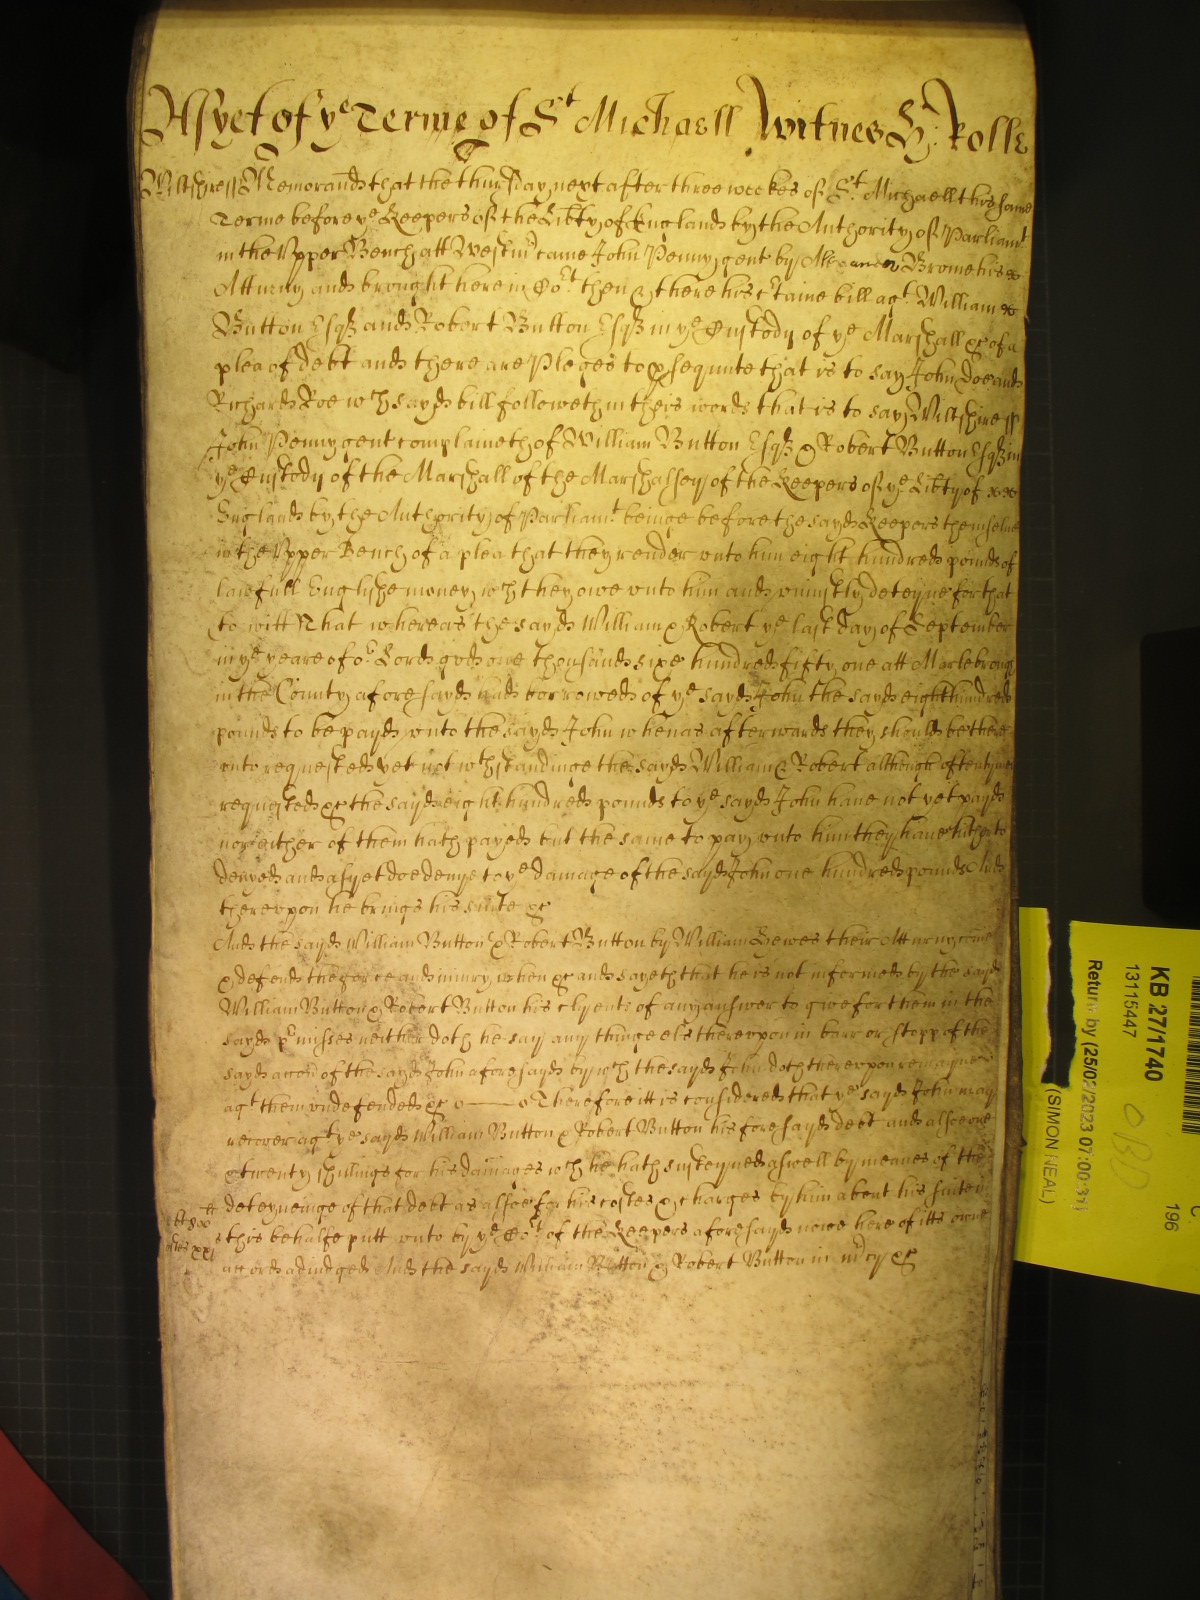 As yet of ye Terme of St Michaell Witnes H: Rolle
Wiltshire ss Memorand that the thursday next after three weekes of St. Michaell this same
Terme before ye Keepers of the Libty of England by the Authority of Parliamt
in the Upper Bench att Westmr came John Penny gent by Alexander Brome his
Atturny and brought here in Cort then & there his ctaine bill agt. William
Button Esqr and Robert Button Esqr in ye Custody of ye Marshall &c of a
plea of debt and there are Pleges to psequute that is to say John Doe and
Richard Roe wch sayd bill followeth in theis words that is to say Wiltshire ss
John Penny gent complaineth of William Button Esqr & Robert Button Esqr in
ye Custody of the Marshall of the Marshalsey of the Keepers of ye Libty of
England by the Authority of Parliamt. beinge before the sayd Keepers themselves
in the Upper Bench of a plea that they render unto him eight hundred pounds of
lawfull Englishe money wch they owe unto him and uniustly deteyne for that
to witt That whereas the sayd William & Robert ye last day of September
in ye yeare of or Lord god one thousand sixe hundred fifty one att Marlebrough
in the County aforesayd had borrowed of ye sayd John the sayd eight hundred
pounds to be payd unto the sayd John whenas afterwards they should be there
unto requested yet not wthstandinge the sayd William & Robert although oftentymes
requested &c the sayd eight hundred pounds to ye sayd John have not yet payd
nor either of them hath payed but the same to pay unto him they have hitherto
denyed and as yet doe denye to ye damage of the sayd John one hundred pounds And
thereupon he brings his suite &c
And the sayd William Button & Robert Button by William Hewes their Atturny come
& defend the force and iniury when &c and sayeth that he is not informed by the sayd
William Button & Robert Button his clyents of any answer to give for them in the
sayd pmisses neither doth he say any thinge els thereupon in barr or stopp of the
sayd accon of the sayd John aforesayd by wch the sayd John doth thereupon remayne
agt them undefended &c Therefore itt is considered that ye sayd John may
recover agt ye sayd William Button & Robert Button his foresayd debt and alsoe one
& twenty shillings for his damages wch he hath susteyned aswell by meanes of the
deteyneinge of that debt as alsoe for his costes & charges by him about his suite in
this behalfe putt unto by ye Cort of the Keepers aforesayd nowe here of itts owne
accord adiudged And the sayd William Button & Robert Button in mcy &c
KB 27/1740
13115447
Return by (25/02/2023 07:00:31)
(SIMON NEAL)
196